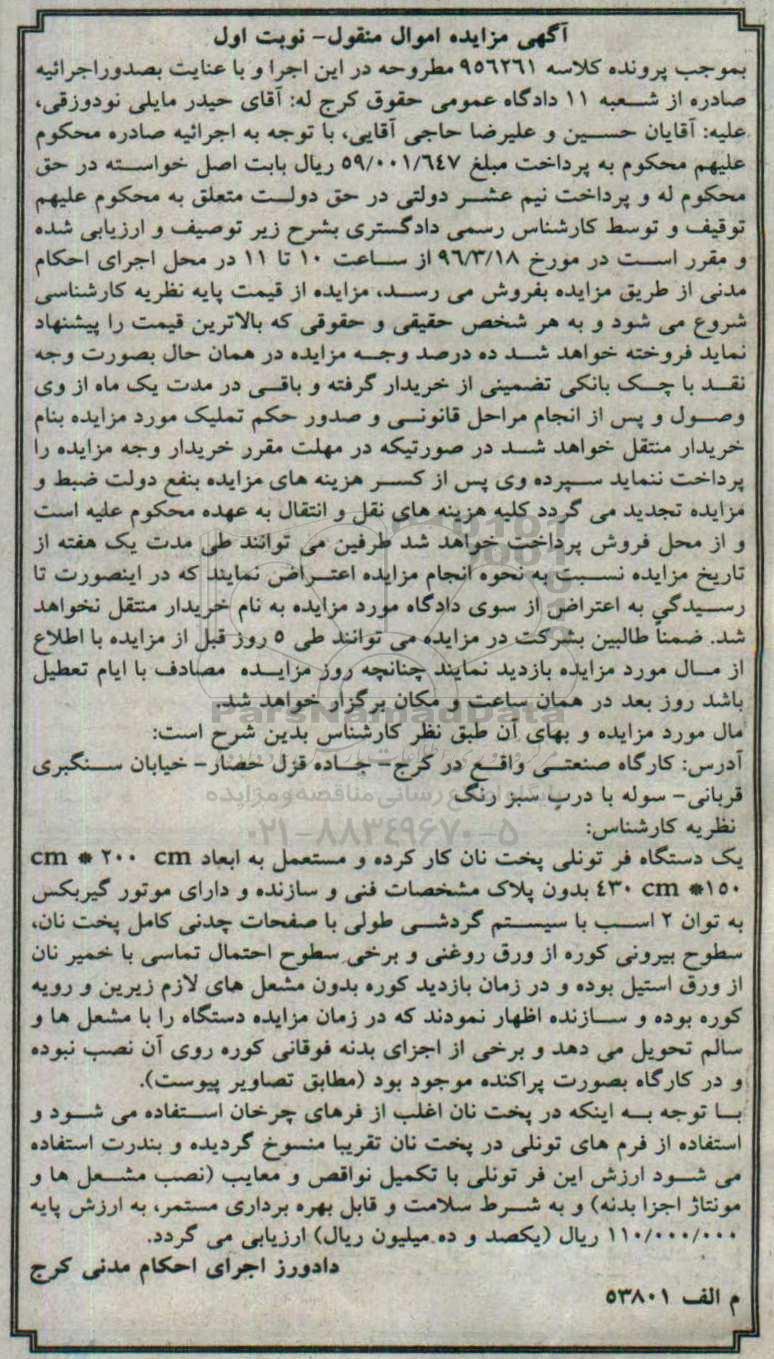 آگهی مزایده اموال منقول- نوبت اول
بموجب پرونده کلاسه ۹۵۶۲۶۱ مطروحه در این اجرا و با عنایت بصدوراجرائیه
صادره از شعبه ۱۱ دادگاه عمومی حقوق کرج له: آقای حیدر مایلی نودوزقی،
علیه: آقایان حسین و علیرضا حاجی آقایی، با توجه به اجرائیه صادره محکوم
علیهم محکوم به پرداخت مبلغ ۵۹/۰۰۱/۶۴۷ ریال بابت اصل خواسته در حق
محکوم له و پرداخت نیم عشر دولتی در حق دولت متعلق به محکوم علیهم
توقیف و توسط کارشناس رسمی دادگستری بشرح زیر توصیف و ارزیابی شده
و مقرر است در مورخ ۹۶/۳/۱۸ از ساعت ۱۰ تا ۱۱ در محل اجرای احکام
مدنی از طریق مزایده بفروش می رسد، مزایده از قیمت پایه نظریه کارشناسی
شروع می شود و به هر شخص حقیقی و حقوقی که بالاترین قیمت را پیشنهاد
نماید فروخته خواهد شد ده درصد وجه مزایده در همان حال بصورت وجه
نقد با چک بانکی تضمینی از خریدار گرفته و باقی در مدت یک ماه از وی
وصول و پس از انجام مراحل قانونی و صدور حکم تملیک مورد مزایده بنام
خریدار منتقل خواهد شد در صورتیکه در مهلت مقرر خریدار وجه مزایده را
پرداخت ننماید سپرده وی پس از کسر هزینه های مزایده بنفع دولت ضبط و
مزایده تجدید می گردد کلیه هزینه های نقل و انتقال به عهده محکوم علیه است
و از محل فروش پرداخت خواهد شد طرفین می توانند طی مدت یک هفته از
تاریخ مزایده نسبت به نحوه انجام مزایده اعتراض نمایند که در اینصورت تا
رسیدگی به اعتراض از سوی دادگاه مورد مزایده به نام خریدار منتقل نخواهد
شد. ضمناً طالبین بشرکت در مزایده می توانند طی ۵ روز قبل از مزایده با اطلاع
از مال مورد مزایده بازدید نمایند چنانچه روز مزایده مصادف با ایام تعطیل
باشد روز بعد در همان ساعت و مکان برگزار خواهد شد.
ParsNamadData
مال مورد مزایده و بهای آن طبق نظر کارشناس بدین شرح است:
آدرس: کارگاه صنعتی واقع در کرج- جاده قزل حصار- خیابان سنگبری
قربانی- سوله با درب سبز رنگ
پایگاه اطلاع رسانی مناقصه و مزایده
نظریه کارشناس:
۰۲۱-۸۸۳۴۹۶۷۰-۵
یک دستگاه فر تونلی پخت نان کار کرده و مستعمل به ابعاد cm * ۲۰۰ cm
۱۵۰* ۴۳۰ cm بدون پلاک مشخصات فنی و سازنده و دارای موتور گیربکس
به توان ۲ اسب با سیستم گردشی طولی با صفحات چدنی کامل پخت نان،
سطوح بیرونی کوره از ورق روغنی و برخی سطوح احتمال تماسی با خمیر نان
از ورق استیل بوده و در زمان بازدید کوره بدون مشعل های لازم زیرین و رویه
کوره بوده و سازنده اظهار نمودند که در زمان مزایده دستگاه را با مشعل ها و
سالم تحویل می دهد و برخی از اجزای بدنه فوقانی کوره روی آن نصب نبوده
و در کارگاه بصورت پراکنده موجود بود (مطابق تصاویر پیوست).
با توجه به اینکه در پخت نان اغلب از فرهای چرخان استفاده می شود و
استفاده از فرم های تونلی در پخت نان تقریبا منسوخ گردیده و بندرت استفاده
می شود ارزش این فر تونلی با تکمیل نواقص و معایب (نصب مشعل ها و
مونتاژ اجزا بدنه) و به شرط سلامت و قابل بهره برداری مستمر، به ارزش پایه
۱۱۰/۰۰۰/۰۰۰ ریال (یکصد و ده میلیون ریال) ارزیابی می گردد.
دادورز اجرای احکام مدنی کرج
م الف ۵۳۸۰۱